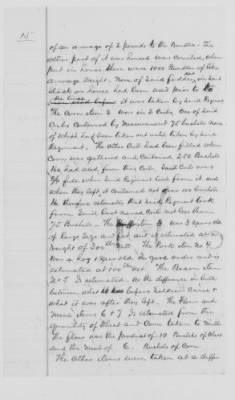 15
of an average of 2 pounds to the Bundle. The
other part of it was housed was Counted, when
put in house there were 1000 Bundles of like
average weight. None of said fodder, in said
Stack or house had been used prior to
it was taken by said Regmt
The Corn item 2 was in 2 Cribs One of said
Cribs Contained by Measurement 75 bushels none
of which had been taken out until taken by said
Regiment. The other Crib had been filled when
Corn was gathered and Contained 250 Bushels
He had used from this Crib. Said Crib was
full when said Regiment took from it, and
when they left it Contained not over 100 bushels
He therefore estimates that said Regmt took
from said last named Crib not less than
75 Bushels. The 3 was 3 years old
of large size and fat and is estimated at a
weight of 300 The Pork item No 4
was a hog 1 year old in good order and is
estimated at 100 The Bacon item
No 5 is estimated. As the difference in bulk
between what it was before Soldiers Came &
what it was after they left. The Flour and
Meal items 6 & 7 is estimated from the
quantity of Wheat and Corn taken to Mill
The flour was the product of 10 Bushels
and the Meal of 6 Bushels of Corn
The other items were taken at a diffe